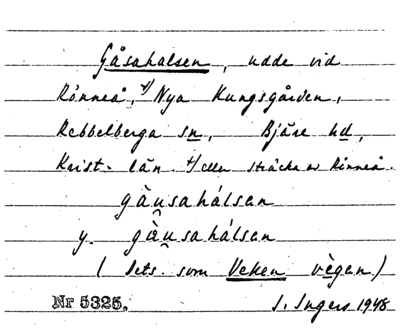 Gåsahalsen, udde vid
Rönneå, +) Nya Kungsgården,
Rebbelberga sn, Bjäre hd,
Krist. län. +) eller sträcka av Rönneå.
gàu̯sahálsen
y. gàu̯sahálsen
( Dets. som Veken vègan)
Nr 5325. I. Ingers 1948